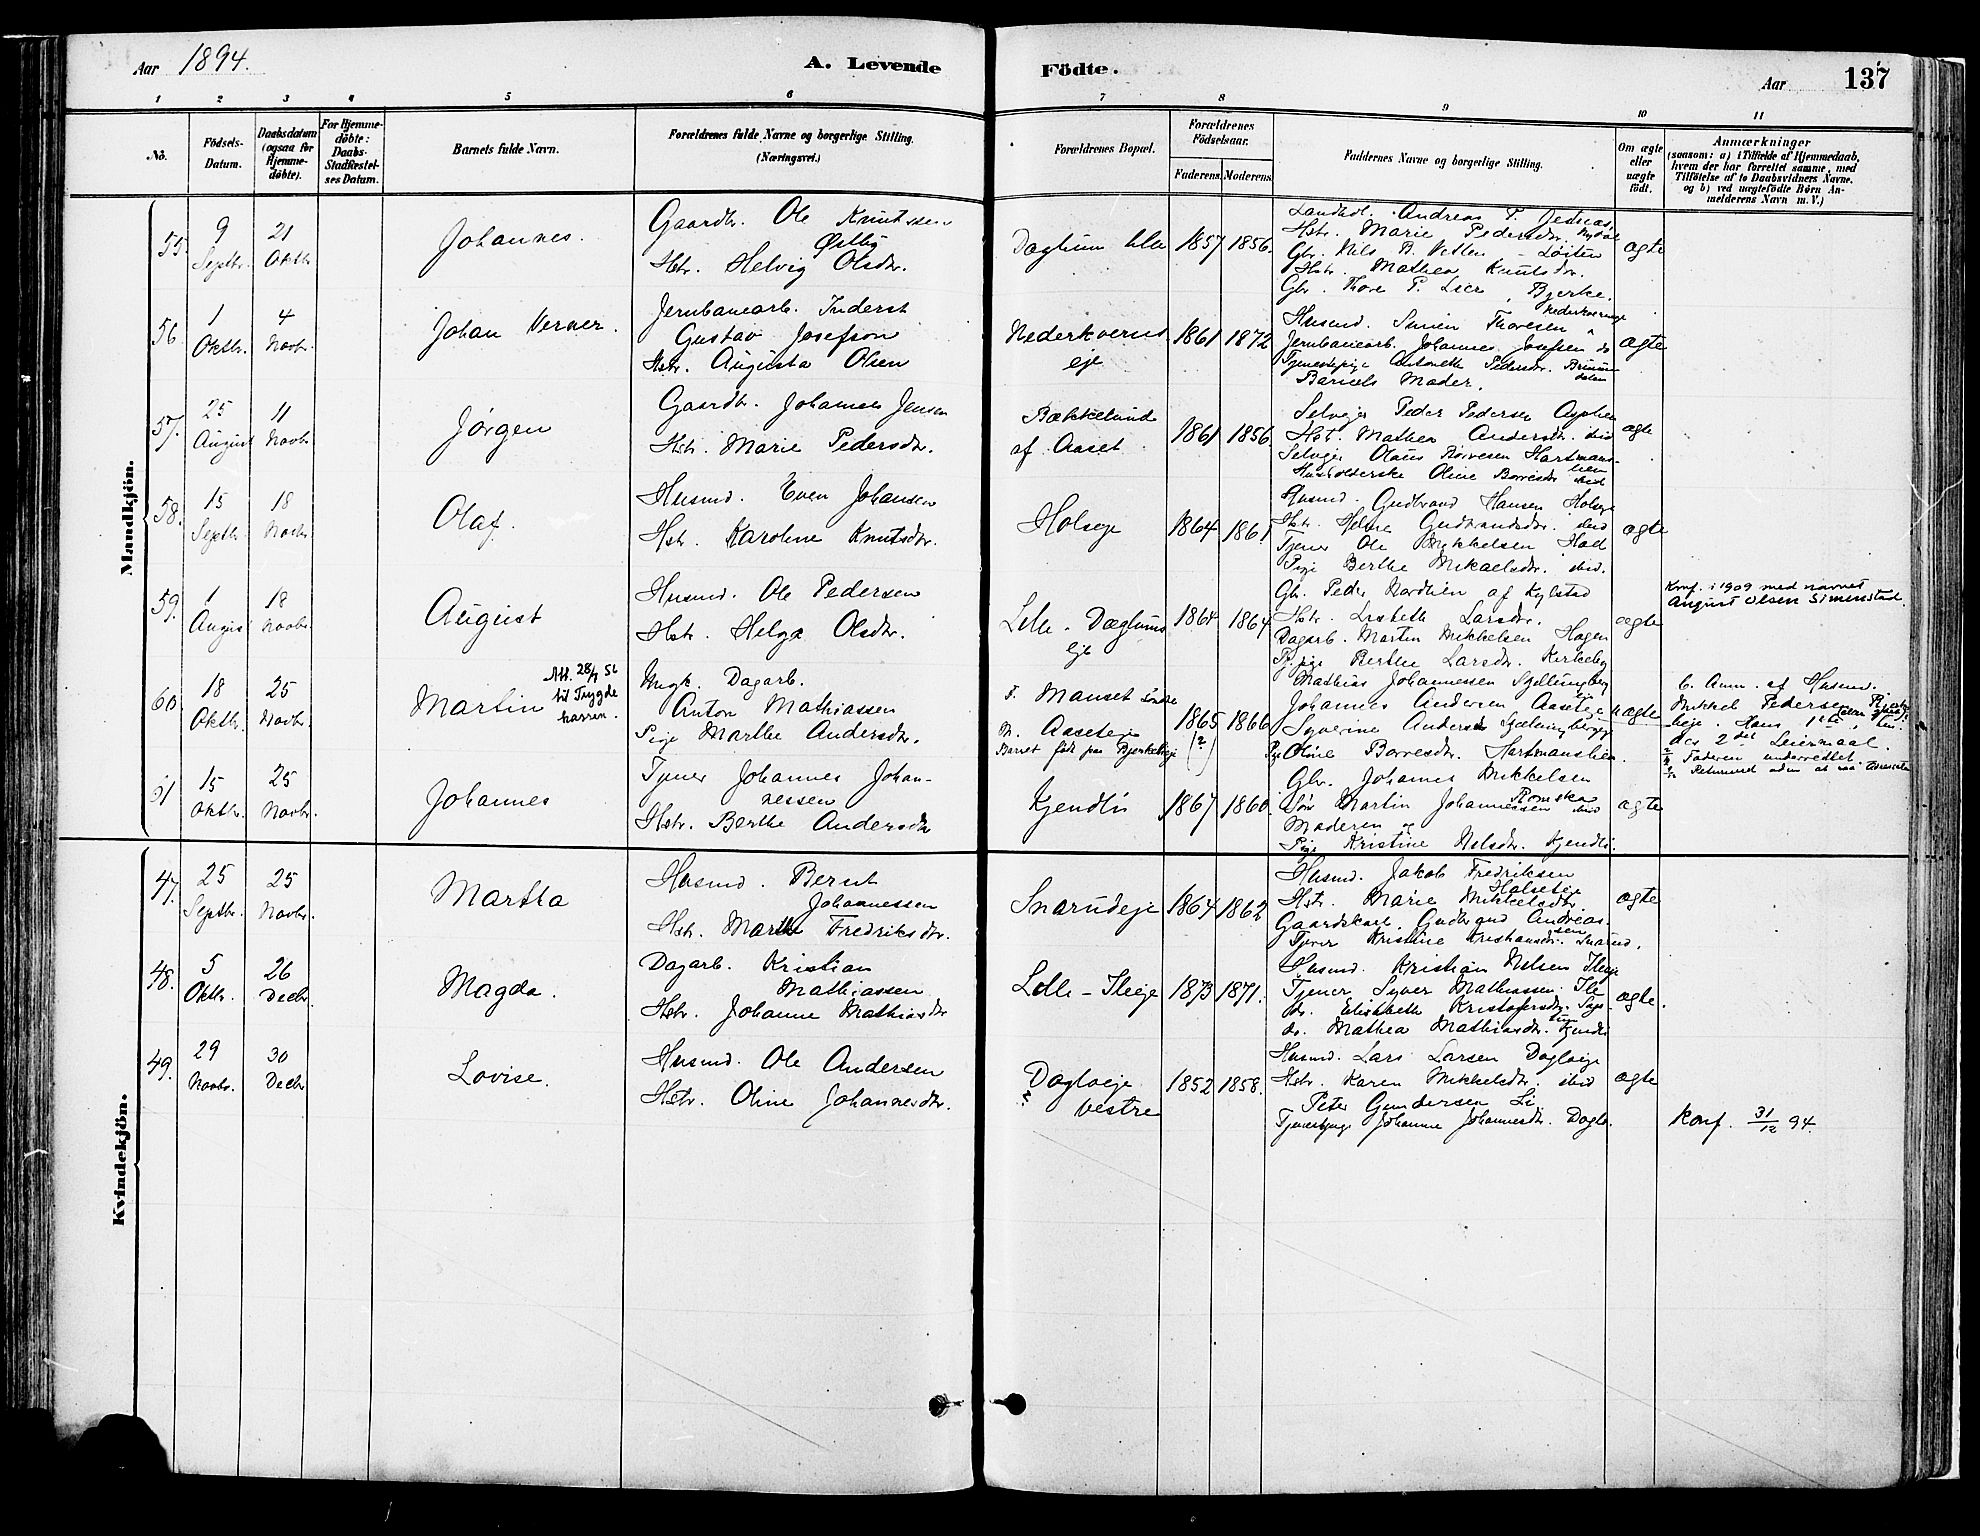 Aar 1894.
A. Levende Födte.
Aar 137
1 2 3 4 5 6 7 8 9 10 11
No.
Födsels-Datum.
Daabsdatum (ogsaa for Hjemme-döbte).
For Hjemme-döbte: Daabs-Stadfæstel-ses Datum.
Barnets fulde Navn.
Forældrenes fulde Navne og borgerlige Stilling. (Næringsvei.)
Forældrenes Bopæl.
Forældrenes Födselsaar.
Faderens. Moderens.
Faddernes Navne og borgerlige Stilling.
Om ægte eller uægte födt.
Anmærkninger
(saasom: a) i Tilfælde af Hjemmedaab,
hvem der har forrettet samme, med
Tilföielse af to Daabsvidners Navne.
og b) ved uægtefödte Börn An-
melderens Navn m. V.)
Mandkjön.
55. 9 Septbr. 21 Oktbr Johannes.
Gaardbr. Ole Knutssen
Østby
Hstr. Helvig Olsdr.
Daglum lille 1857 1856.
Landhdl. Andreas P.
Hstr. Marie Pedersdr. Nydal
Gbr. Nils Løiten
Hstr. Mathea Knutsdr.
Gbr. Thore P. Lier, Bjerke.
ægte
56. 1 Oktbr. 4 Novbr. Johan Verner.
Jernbanearb. Inderst
Gustav Josefson
Hstr. Augusta Olsen
Nederkverns eje 1861 1872
Nederkvernseje
Husmd. Simen Thoresen
Jernbanearb. Johannes Josefsen do
Tjenestepige Antonette Pedersdr. Brumunddalen
Barnets Moder.
ægte
57. 25 August 11 Novbr. Jørgen
Gaardbr. Johannes Jensen
Hstr. Marie Pedersdr.
Bækkelund af Aaset 1861 1856.
Selvejer Peder Pedersen
Hstr. Mathea Andersdr. ibid
Selvejer Olaus Børresen Hartmanslien
Husholderske Oline Børresdr ibid
ægte
58. 15 Septbr. 18 Novbr. Olaf.
Husmd. Even Johansen
Hstr. Karoline Knutsdr.
Holseje 1864 1861
Husmd. Gudbrand Hansen Holseje
Hstr. Helene Gudbrandsdr. ibid
Tjener Ole Mikkelsen Hol
Pige Berthe Mikaelsdr. ibid.
ægte
59. 1 August 18 Novbr. August
Husmd. Ole Pedersen
Hstr. Helga Olsdr.
Lille-Dæglums eje 1864 1864
Gbr. Peder Nordlien af Kylstad
Hstr. Lisbeth Larsdr.
Dagarb. Martin Mikkelsen Hagen
Tj.pige Berthe Larsdr. Kirkeby
ægte
Konf. i 1909 med navnet
August Olsen Simenstad.
60. 18 Oktbr. 25 Novbr. Martin
Att. 28/9 56
til Trygde
kassen.
Ungk. Dagarb.
Anton Mathiassen
Pige Marthe Andersdr.
F. Manset søndre
M. Aaseteje
Barnet født paa Bjerkelieje
1865 (?) 1866
Mathias Johannessen Gjetlungberg
Johannes Andersen Aaseteje
Syverine Andersdr Gjetlungberg
Pige Oline Borresdr. Hartmanslien.
uægte
b. Anm. af Husmd.
Mikkel Pedersen Bjerke-
lieje. Hans 1ste, hun-
des 2det Leiermaal.
Faderen underrettet.
61 15 Oktbr. 25 Novbr. Johannes
Tjener Johannes Johan-
nessen
Hstr. Berthe Andersdr
Kjendli 1867 1860.
Gbr. Johannes Mikkelsen
Romskog
Søn Martin Johannessen ibid
Moderen og
Pige Kristine Nelsdr. Kjendli.
ægte
Kvindekjön.
47. 25 Septbr. 25 Novbr. Martha
Husmd. Bernt
Johannessen
Hstr. Marthe Fredriksdr.
Snarudeje 1864 1862
Husmd. Jakob Fredriksen
Holseteje
Hstr. Marie Mikkelsdr.
Gaardskarl Gudbrand Andreas-
sen
Tjener Kristine Kristiansdr. Snarud.
ægte
48. 5 Oktbr. 26 Decbr. Magda.
Dagarb. Kristian
Mathiassen
Hstr. Johanne Mathiasdr
Lille-Ileeje 1873 1871.
Husmd. Kristian Nelsen Ileeje
Tjener Syver Mathiassen Ile
do. Elisabeth Kristofersdr.
do. Mathea Mathiasdr. Kjendli
ægte.
49. 29 Novbr. 30 Decbr Lovise.
Husmd. Ole Andersen
Hstr. Oline Johannesdr.
Dogloeje vestre 1852 1858.
Husmd. Lars Larsen Dogloeje
Hstr. Karen Mikkelsdr. ibid
Peter Gundersen Li
Tjenestepige Johanne Johannesdr. Doglo.
ægte
Konf. 31/12 94.